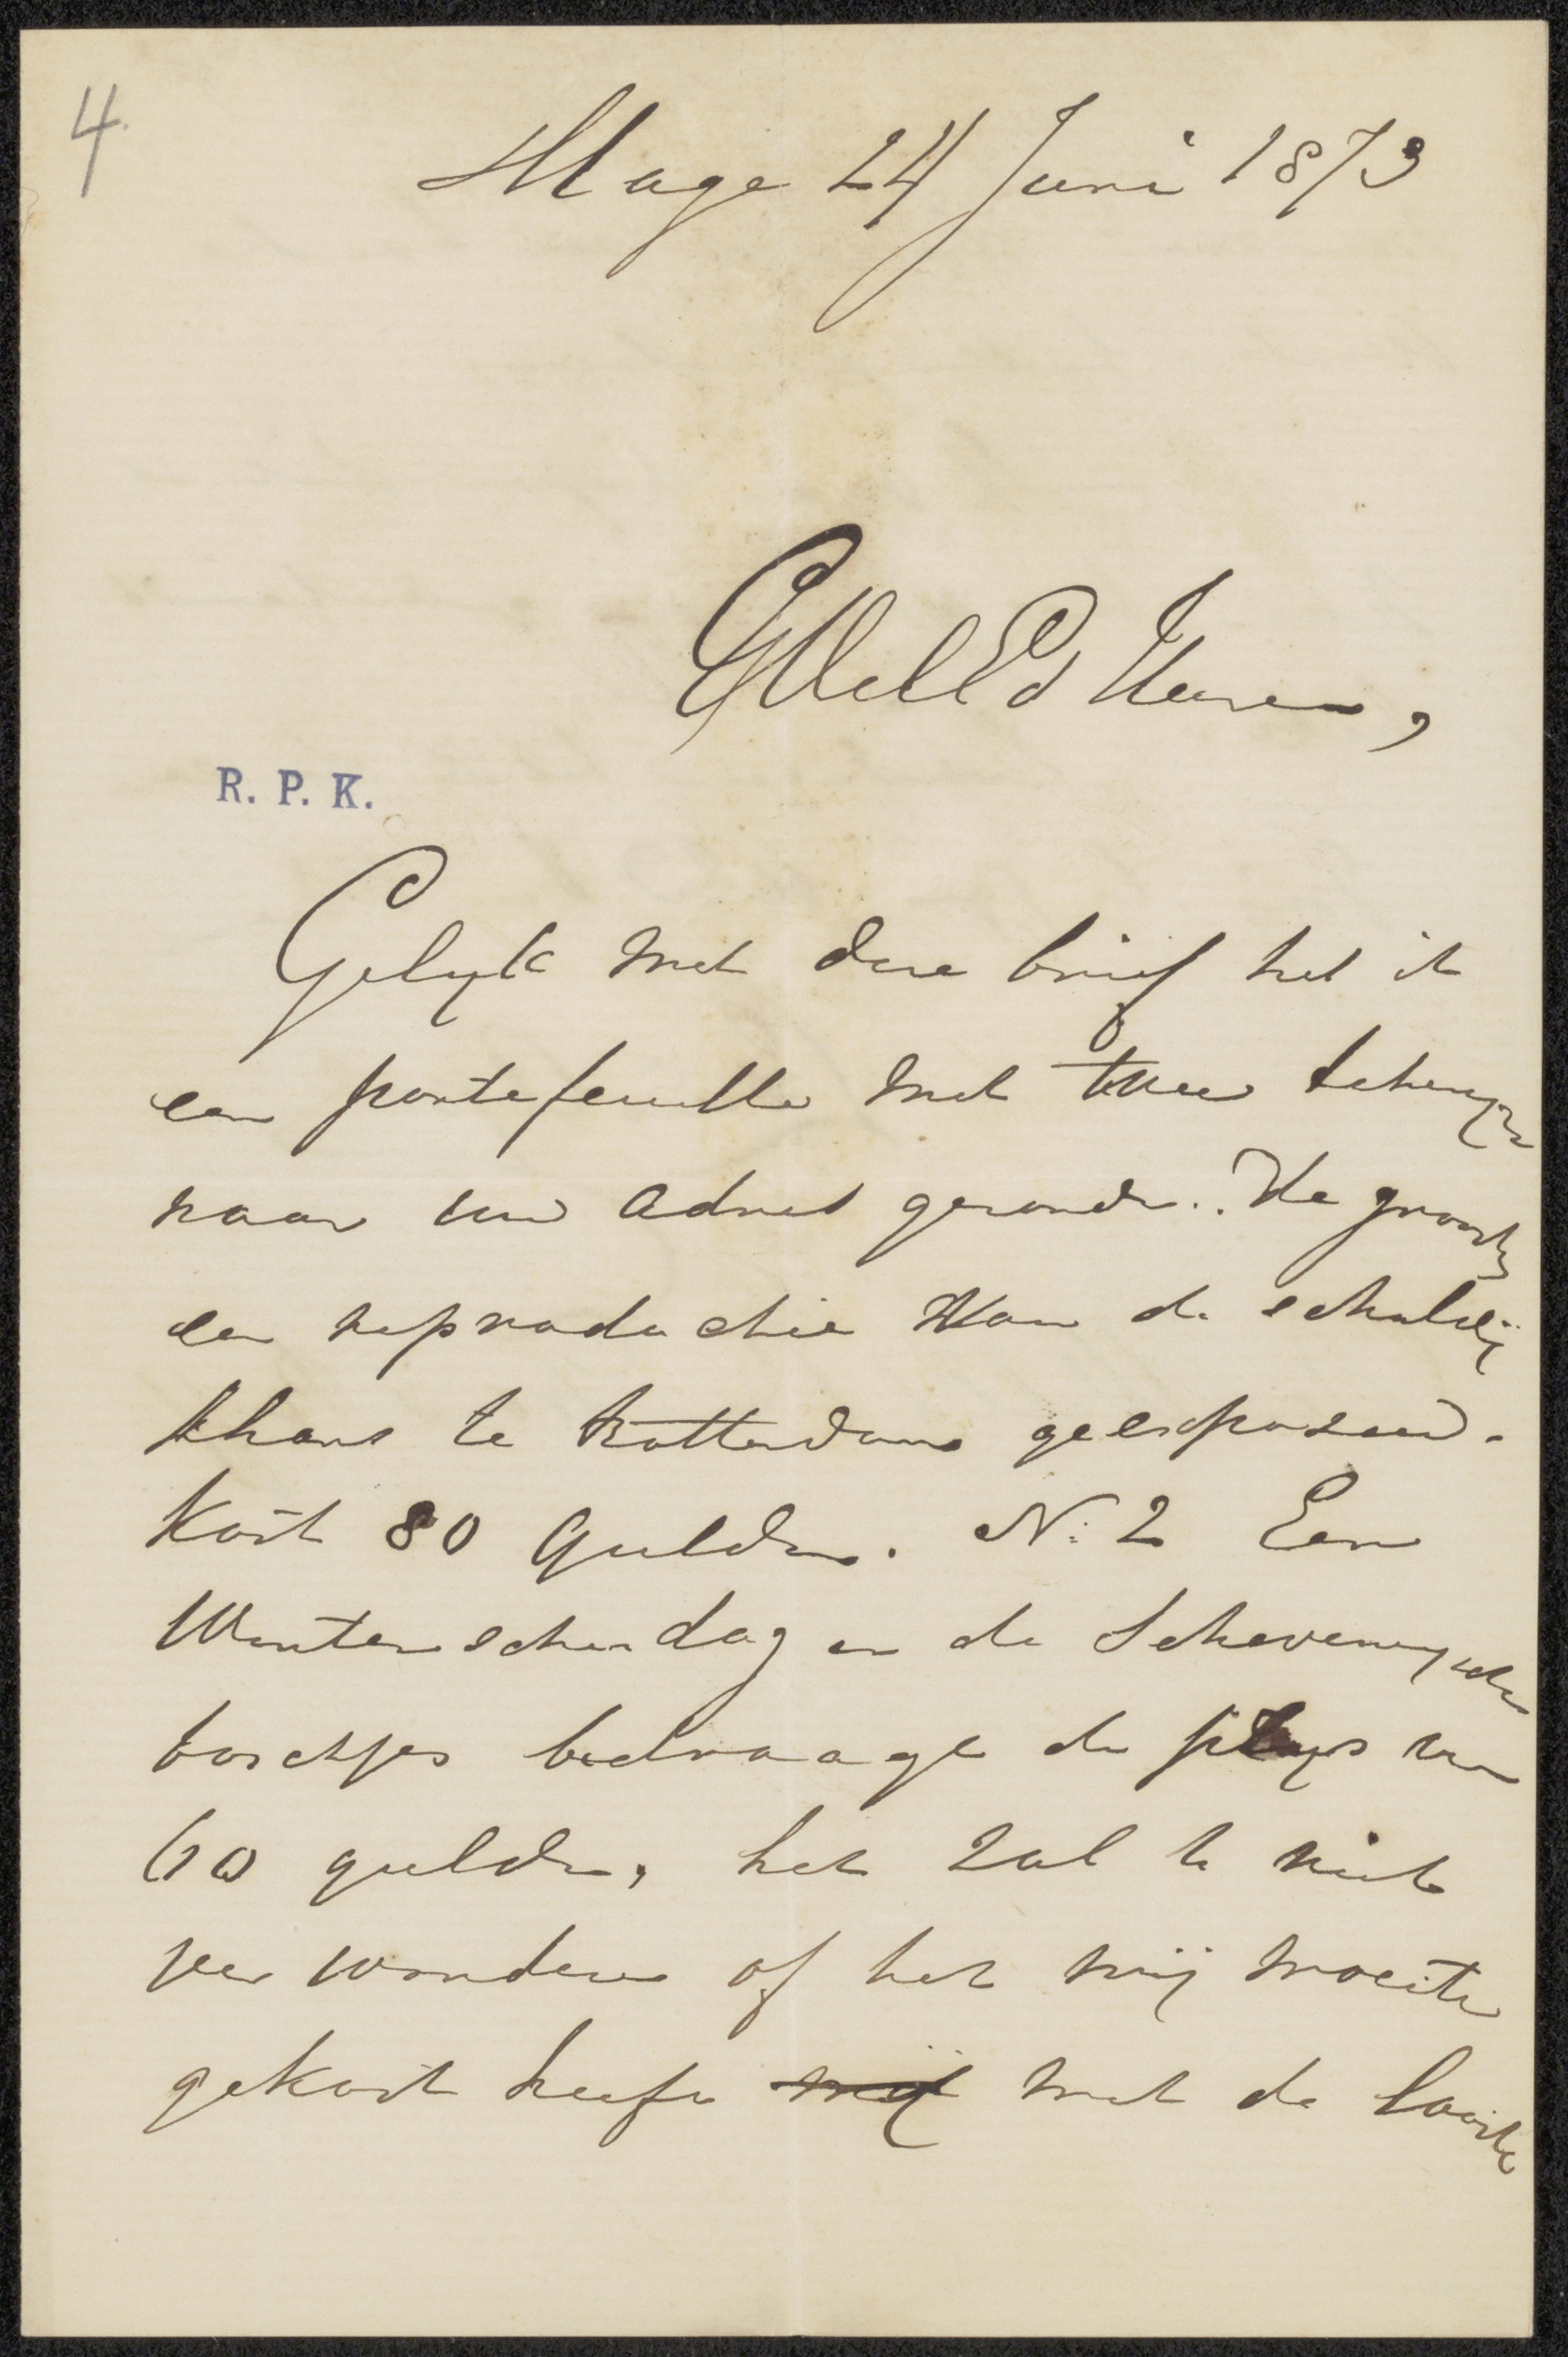 4
Hage 24 Juni 1873
WelEd Heeren,
R. P. K.
Gelijk met deze brief heb ik
een portefeuille met twee
naar uw adres gezonden.. De grootste
een reproductie van de schilderij
thans te Rotterdam geexposeerd.
Kost 80 Gulden. N: 2 Een
Winterschen dag in de Scheveningsche
boschjes bedraage de prijs van
60 gulden, het zal U niet
verwonderen of het mij moeite
gekost heeft met de laatste